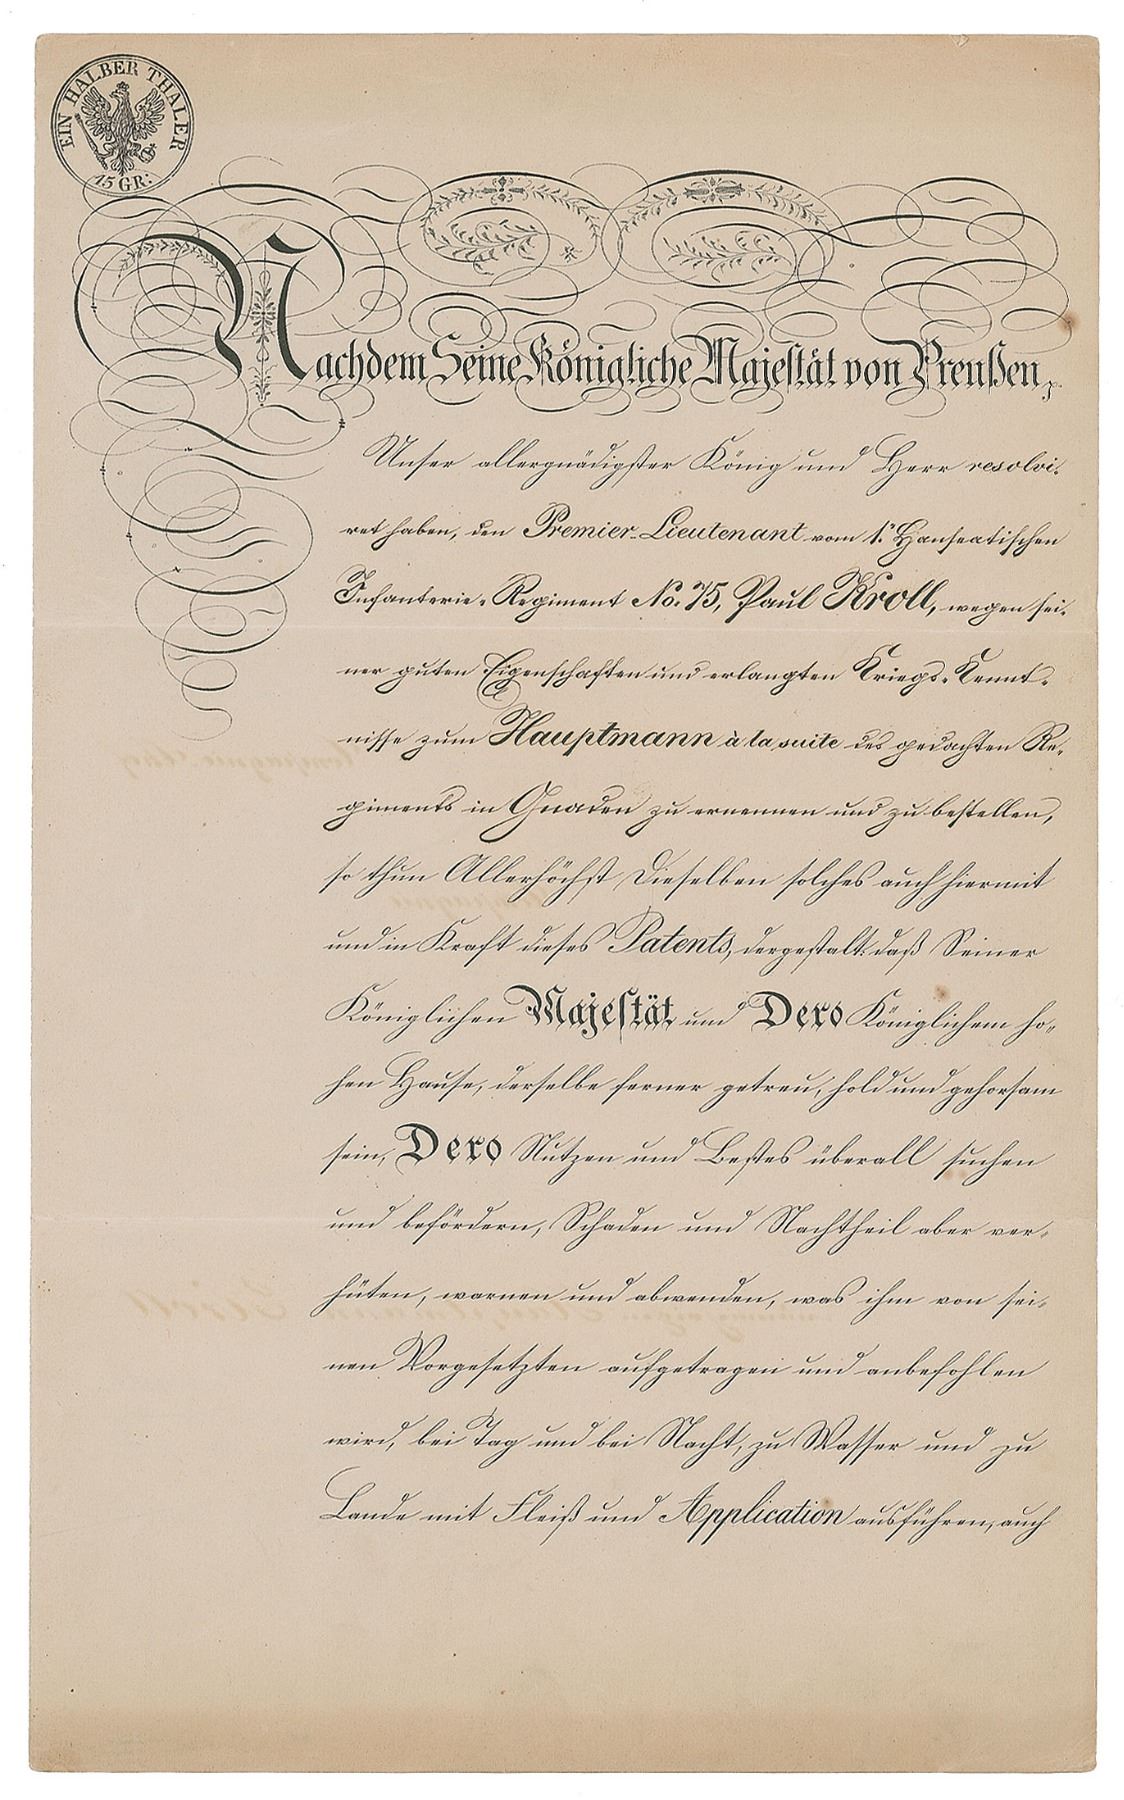 EIN HALBER THALER
15 GR:
Nachdem Seine Königliche Majestät von Preußen,
Unser allergnädigster König und Herr resolvi-
ret haben, den Premier-Lieutenant vom 1. Hanseatischen
Infanterie-Regiment No. 75, Paul Kroll, wegen sei-
ner guten Eigenschaften und erlangten Kriegs-Kennt-
nisse zum Hauptmann à la suite des gedachten Re-
giments in Gnaden zu ernennen und zu bestellen,
so thun Allerhöchst Dieselben solches auch hiermit
und in Kraft dieses Patents, dergestalt: daß Seiner
Königlichen Majestät und Dero Königlichem ho-
hen Hause, derselbe ferner getreu, hold und gehorsam
sein, Dero Nutzen und Bestes überall suchen
und befördern, Schaden und Nachtheil aber ver-
hüten, warnen und abwenden, was ihm von sei-
nen Vorgesetzten aufgetragen und anbefohlen
wird, bei Tag und bei Nacht, zu Wasser und zu
Lande mit Fleiß und Application ausführen, auch